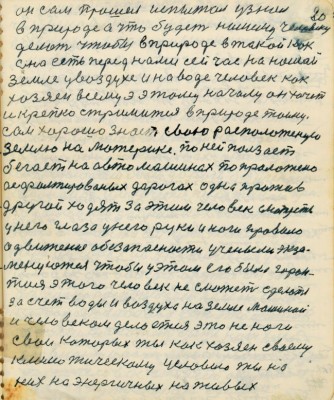 он сам прошел испытал узнал
20
в природе а что будет нашему человеку
делат чтобы в природе в такой как
она есть перед нами сей час на нашей
земле у воздухе и на воде человек как
хозяен всему э этому началу он хочет
и крепко стримится в природе
сам хорошо знает свою расположеную
землю на материке. по ней ползает
бегает на автомашинах по проложено
асфалтированых дорогах одна против
другой ходят за этим человек смотреть
у него глаза у него руки и ноги правило
о движению обезапасности учений экза-
менуются чтобы у этом его была гаран-
тия этого человек не сможет сделать
за счет воды и воздуха на земле машиной
и человеком делается это не ноги
свои которых ты как хозяен своему
климотическому условию ты на
них на энергичных на живых